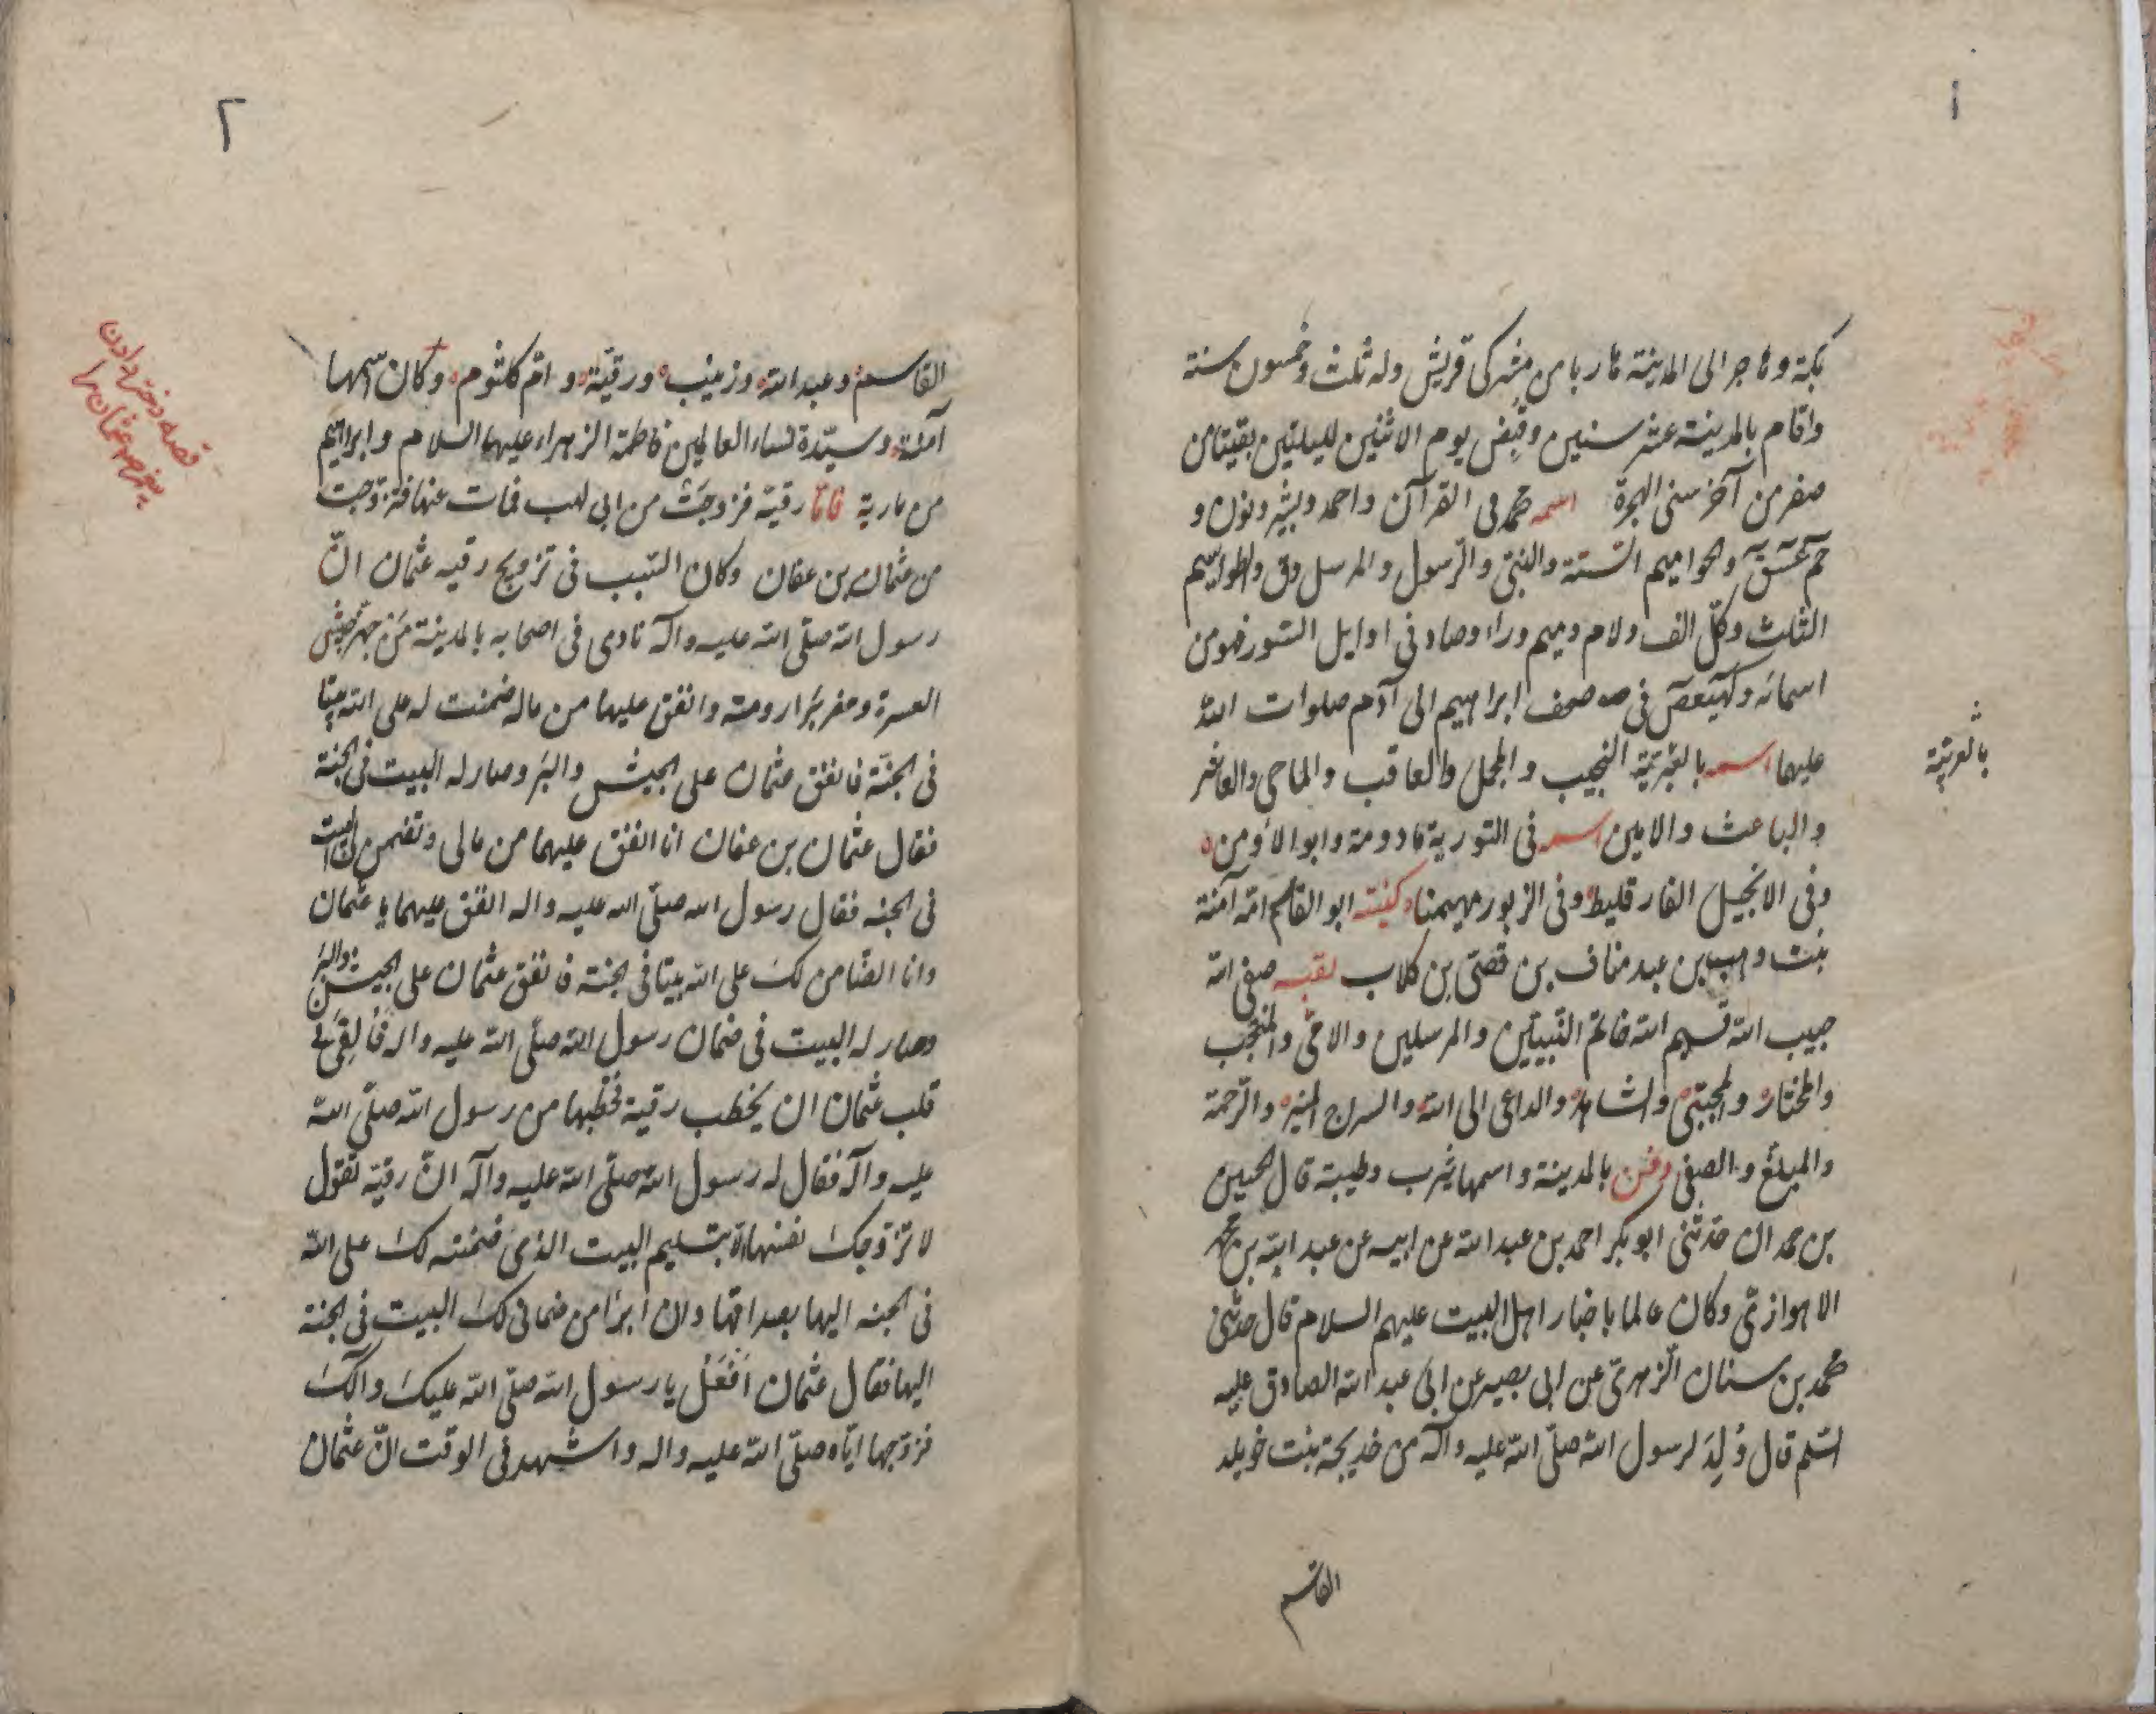 ١
بمكة وهاجر الى المدينة هاربا من مشركى قريش وله ثلث وخمسون سنة
واقام بالمدينة عشر سنين وقُبِض يوم الاثنين لليلتين بقيتا من
صفر من آخر سنى الهجرة اسمه محمد فى القرآن واحمد وبشير ونون و
حم عسق والحواميم الستة والنبىّ والرّسول والمرسل وق والطواسيم
الثلث وكلّ الف ولام وميم وراء وصاد فى اوايل السّور فهو من
اسمائه وكهيعص فى صحف ابراهيم الى آدم صلوات الله
عليهما اسمه بالعبريّة النجيب والمجمل والعاقب والماحى والعاشر
بالعربيّة
والباعث والامين اسمه فى التورية مادومة وابو الأومن
وفى الانجيل الفارقليط وفى الزبور مهيمنا كنيته ابو القاسم امّه آمنة
بنت وهب بن عبد مناف بن قصىّ بن كلاب لقبه صفى الله
حبيب الله قسيم الله خاتم النّبيّين والمرسلين والامّى والمنتجب
والمختار والمجتبى والشاهد والداعى الى الله والسراج المنير والرّحمة
والمبلّغ والصفى دفن بالمدينة واسمها يثرب وطيبة قال الحسين
بن حمدان حدّثنى ابو بكر احمد بن عبد الله عن ابيه عن عبد الله بن محمد
الاهوازىّ وكان عالما باخبار اهل البيت عليهم السلام قال حدثنى
محمد بن سنان الزّهرىّ عن ابى بصير عن ابى عبد الله الصادق عليه
السّلم قال وُلِدَ لرسول الله صلّى الله عليه وآله من خديجة بنت خويلد
القاسم
٢
القاسم وعبد الله وزينب ورقيّة وامّ كلثوم وكان اسمها
آمنة وسيّدة نساء العالمين فاطمة الزهراء عليها السلام وابراهيم
قصه دختر دادن
پيغمبر عثمان را
من مارية فامّا رقية فزوجت من ابى لهب فمات عنها فتزوّجت
من عثمان بن عفان وكان السّبب فى تزويج رقيه عثمان انّ
رسول الله صلّى الله عليه وآله نادى فى اصحابه بالمدينة مَن جهّز جيش
العسرة وحفر بئر رومة وانفق عليهما من ماله ضمنت له على الله بيتا
فى الجنّة فانفق عثمان على الجيش والبئر وصار له البيت فى الجنة
فقال عثمان بن عفان انا انفق عليهما من مالى وتضمن لى البيت
فى الجنه فقال رسول الله صلّى الله عليه واله انفق عليهما يا عثمان
وانا الضّامن لك على الله بيتا فى الجنة فانفق عثمان على الجيش والبئر
وصار له البيت فى ضمان رسول الله صلّى الله عليه واله فَأُلقِىَ فى
قلب عثمان ان يخطب رقية فخطبها من رسول الله صلّى الله
عليه وآله فقال له رسول الله صلّى الله عليه وآله انّ رقيّة تقول
لا تزوّجك نفسها الّا بتسليم البيت الذى ضمنته لك على الله
فى الجنه اليها بصداقها وان ابرأ من ضمانى لك البيت فى الجنة
اليها فقال عثمان اَفعَلُ يا رسول الله صلّى الله عليك وآلك
فزوّجها ايّاه صلّى الله عليه واله واشهد فى الوقت انّ عثمان